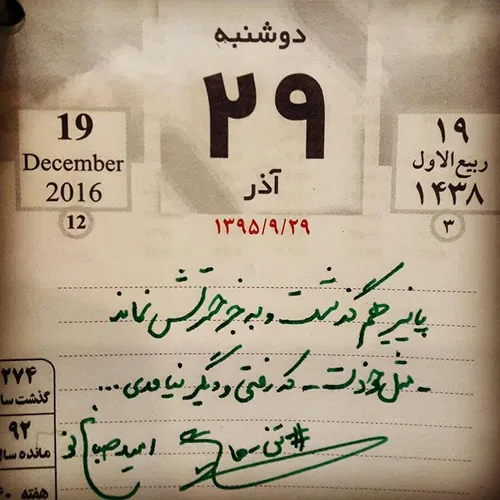 دوشنبه
۲۹
آذر
۱۳۹۵/۹/۲۹
19
December
2016
12
۱۹
ربیع‌الاول
۱۴۳۸
۳
پاییز هم گذشت و به جز حسرتش نماند
- مثل خودت - که رفتی و دیگر نیامدی...
امید صباغ نو
۲۷۴
گذشت سا
۹۲
مانده سال
هفته